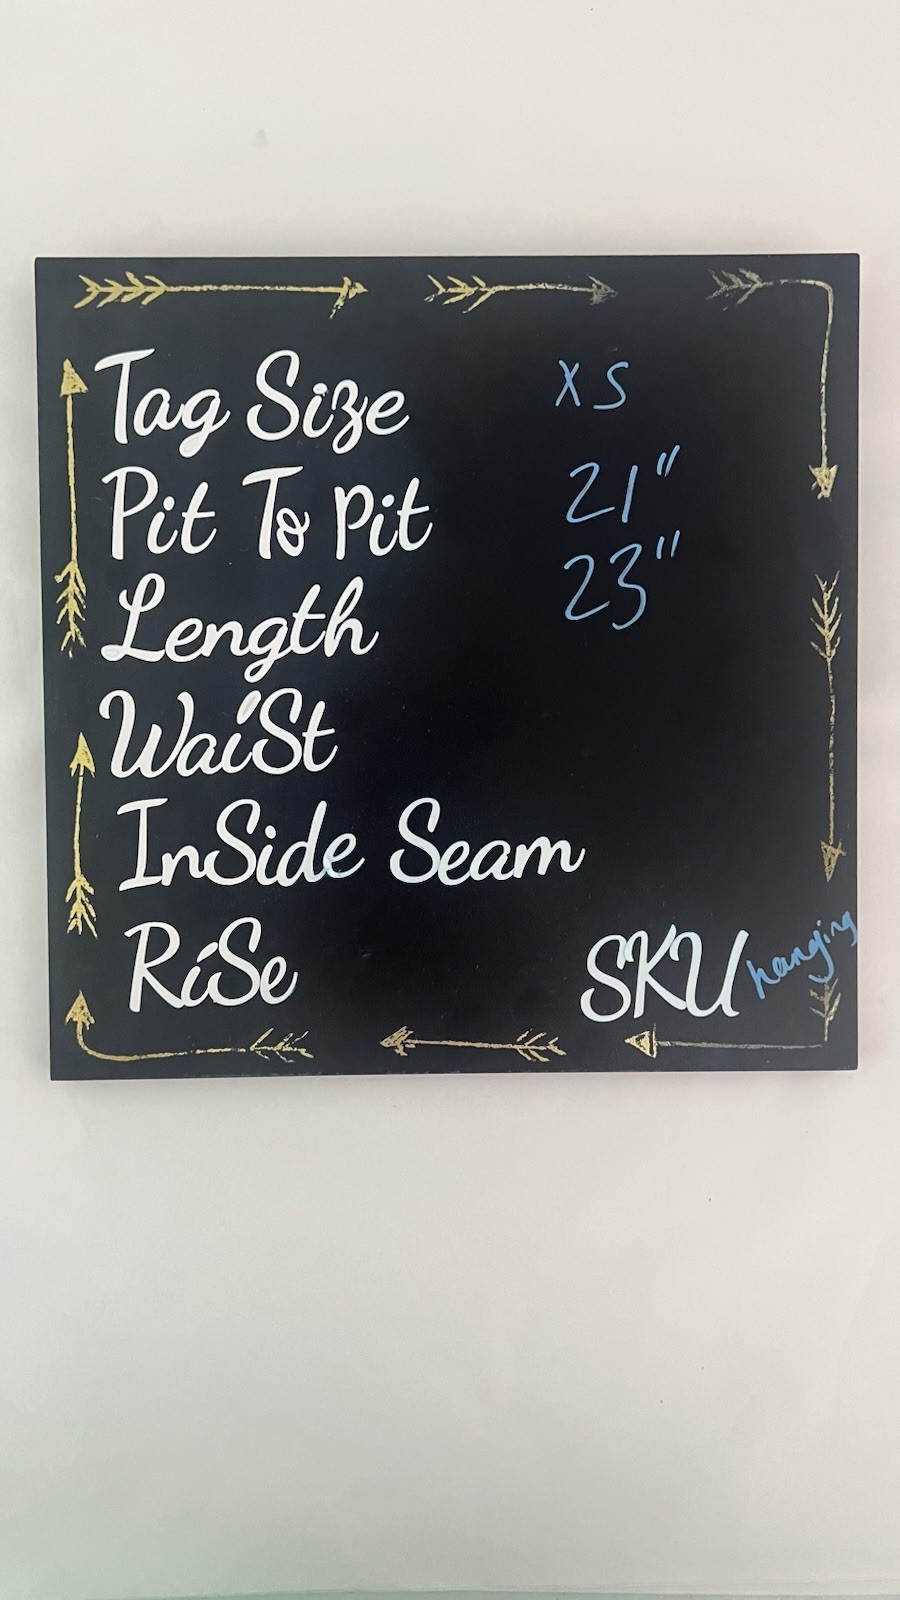 Tag Size XS
Pit To Pit 21"
Length 23"
WaiSt
InSide Seam
RiSe
SKU hanging